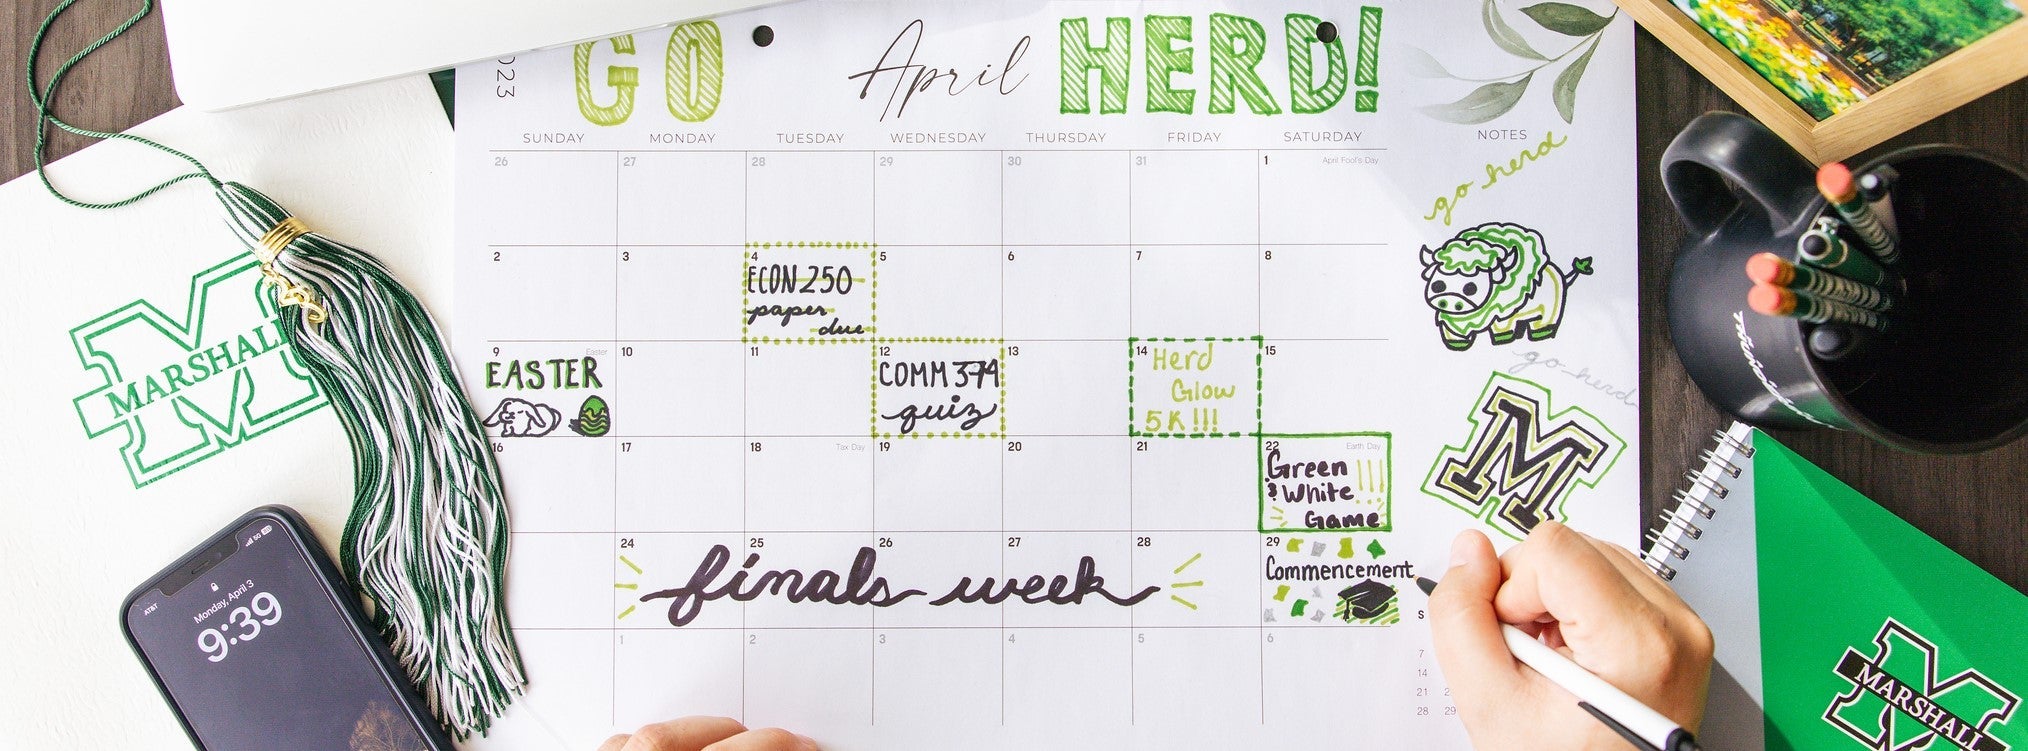 2023
GO April HERD!
SUNDAY MONDAY TUESDAY WEDNESDAY THURSDAY FRIDAY SATURDAY NOTES
26 27 28 29 30 31 1 April Fool's Day
go herd
2 3 4 5 6 7 8
ECON 250
paper
due
9 Easter 10 11 12 13 14 15
EASTER
COMM 374
quiz
Herd
Glow
5K!!!
go herd
M
16 17 18 Tax Day 19 20 21 22 Earth Day
Green
& White
Game
!!!
24 25 26 27 28 29
finals week
Commencement
1 2 3 4 5 6
S
7
14
21
28 29
M
MARSHALL
AT&T
5G
Monday, April 3
9:39
M
MARSHALL